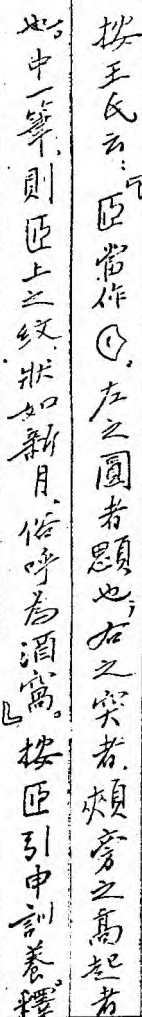 按王氏云：「𦣝當作[?]。左之圓者顋也；右之突者，頰旁之高起者
也。中一筆，則𦣝上之紋，狀如新月，俗呼為酒窩。」按𦣝引申訓養。釋